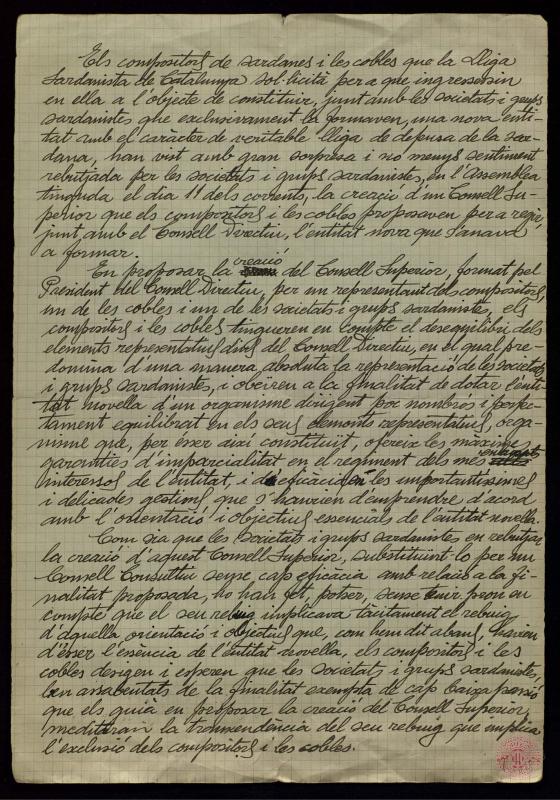 Els compositors de sardanes i les cobles que la Lliga
Sardanista de Catalunya sol·licità per a que ingressessin
en ella a l'objecte de constituir, junt amb les societats i grups
sardanistes que exclusivament la formaven, una nova enti-
tat amb el caràcter de veritable lliga de defensa de la sar-
dana, han vist amb gran sorpresa i no menys sentiment
rebutjada per les societats i grups sardanistes, en l'Assemblea
tinguda el dia 11 dels corrents, la creació d'un Consell Su-
perior que els compositors i les cobles proposaven per a regir,
junt amb el Consell Directiu, l'entitat nova que s'anava
a formar.
En proposar la creació del Consell Superior, format pel
President del Consell Directiu, per un representant dels compositors,
un de les cobles i un de les societats i grups sardanistes, els
compositors i les cobles tingueren en compte el desequilibri dels
elements representatius dins del Consell Directiu, en el qual pre-
domina d'una manera absoluta la representació de les societats
i grups sardanistes, i obeïren a la finalitat de dotar l'enti-
tat novella d'un organisme dirigent poc nombrós i perfec-
tament equilibrat en els seus elements representatius, orga-
nisme que, per ésser així constituït, ofereix les màximes
garanties d'imparcialitat en el regiment dels més
interessos de l'entitat, i d'eficàcia en les importantíssimes
i delicades gestions que s'haurien d'emprendre d'acord
amb l'orientació i objectius essencials de l'entitat novella.
Com sia que les societats i grups sardanistes en rebutjar
la creació d'aquest Consell Superior, substituint-lo per un
Consell Consultiu sense cap eficàcia amb relació a la fi-
nalitat proposada, ho han fet, potser, sense tenir prou en
compte que el seu rebuig implicava tàcitament el rebuig
d'aquella orientació i objectius que, com hem dit abans, havien
d'ésser l'essència de l'entitat novella, els compositors i les
cobles desigen i esperen que les societats i grups sardanistes,
ben assabentats de la finalitat exempta de cap baixa passió
que els guià en proposar la creació del Consell Superior,
meditaran la transcendència del seu rebuig que implica
l'exclusió dels compositors i les cobles.